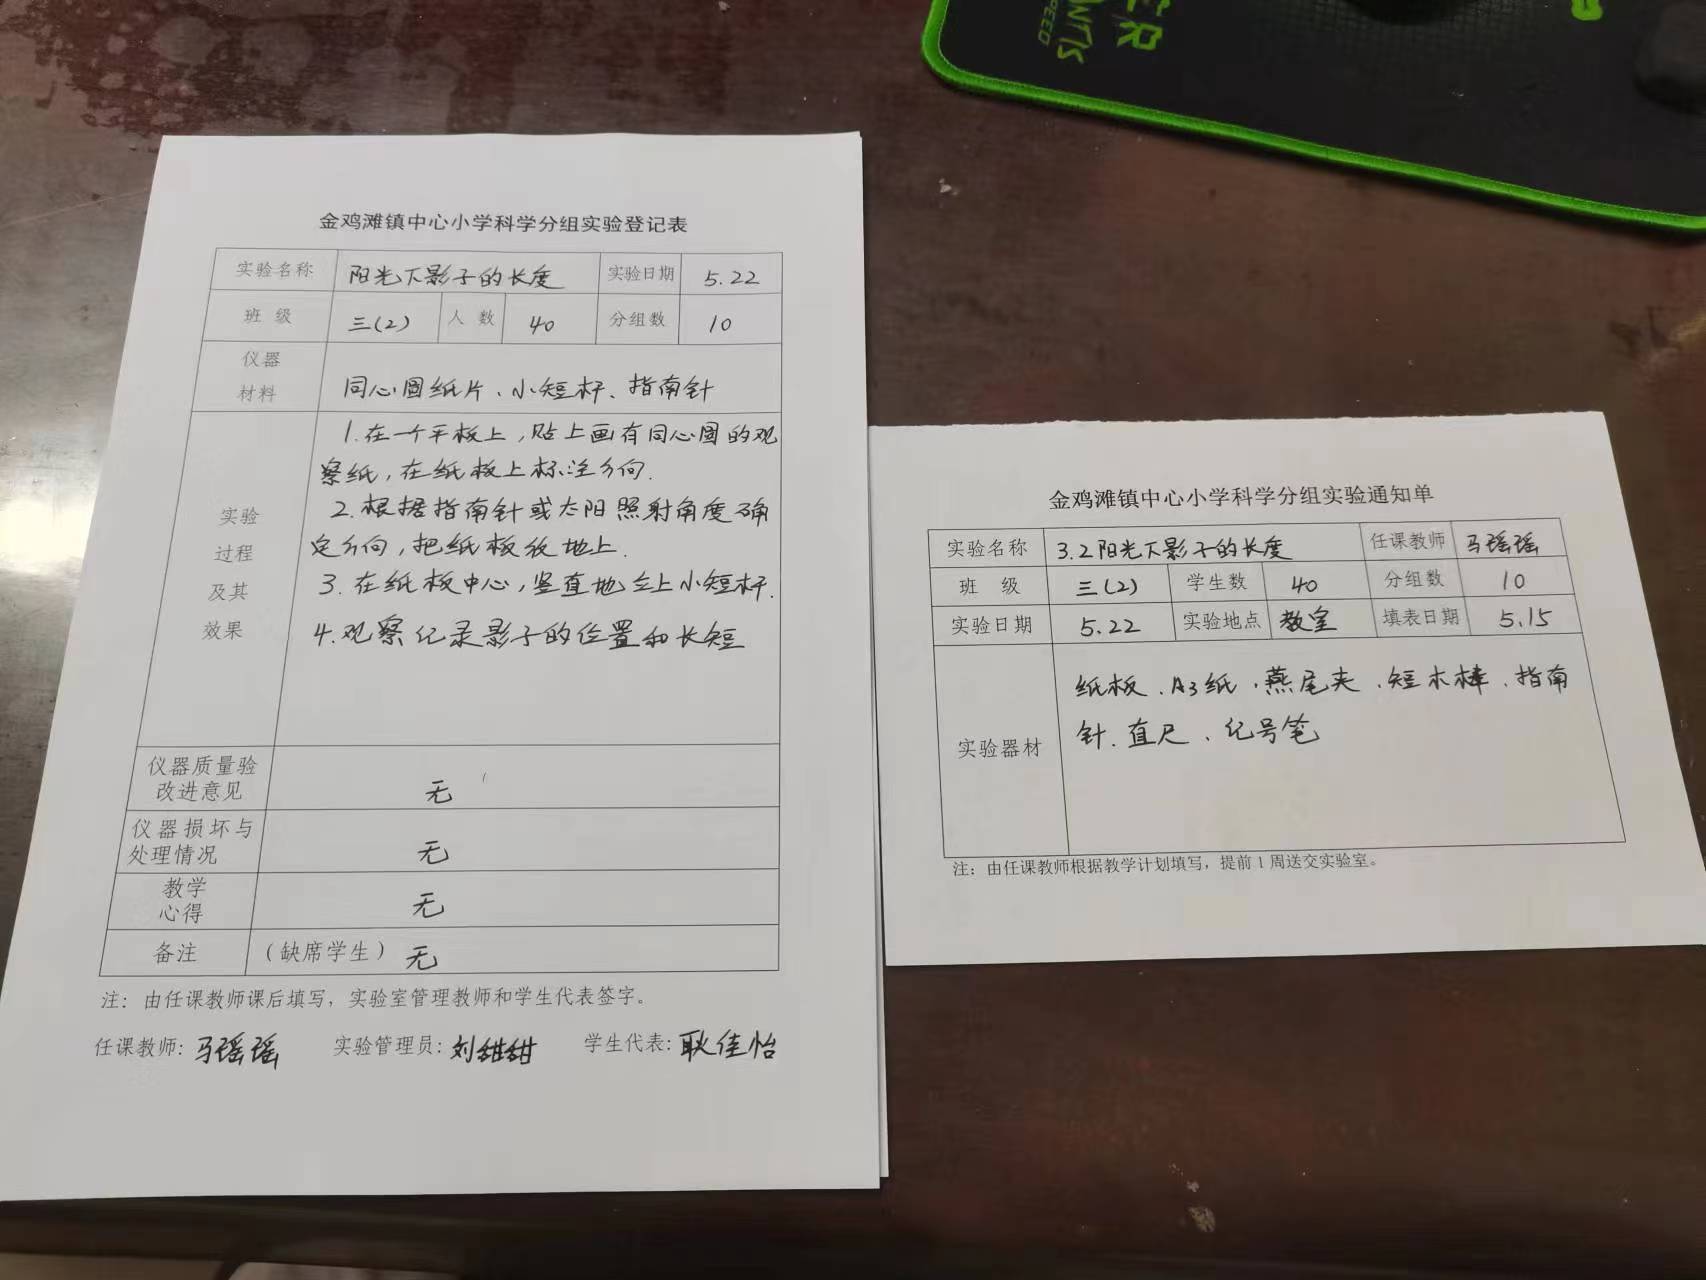 金鸡滩镇中心小学科学分组实验登记表
实验名称 阳光下影子的长度 实验日期 5.22
班 级 三(2) 人 数 40 分组数 10
仪器
材料 同心圆纸片、小短杆、指南针
实验
过程
及其
效果
1.在一个平板上,贴上画有同心圆的观
察纸,在纸板上标注方向.
2.根据指南针或太阳照射角度确
定方向,把纸板放地上.
3.在纸板中心,竖直地立上小短杆.
4.观察纪录影子的位置和长短
仪器质量验
改进意见 无
仪器损坏与
处理情况 无
教学
心得 无
备注 (缺席学生) 无
注: 由任课教师课后填写, 实验室管理教师和学生代表签字。
任课教师: 马瑶瑶 实验管理员: 刘甜甜 学生代表: 耿佳怡
金鸡滩镇中心小学科学分组实验通知单
实验名称 3.2阳光下影子的长度 任课教师 马瑶瑶
班 级 三(2) 学生数 40 分组数 10
实验日期 5.22 实验地点 教室 填表日期 5.15
实验器材
纸板、A3纸、燕尾夹、短木棒、指南
针、直尺、纪号笔
注: 由任课教师根据教学计划填写, 提前1周送交实验室。
SPEED